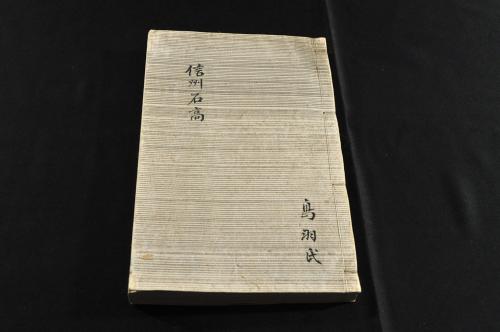 信州石高
鳥羽氏